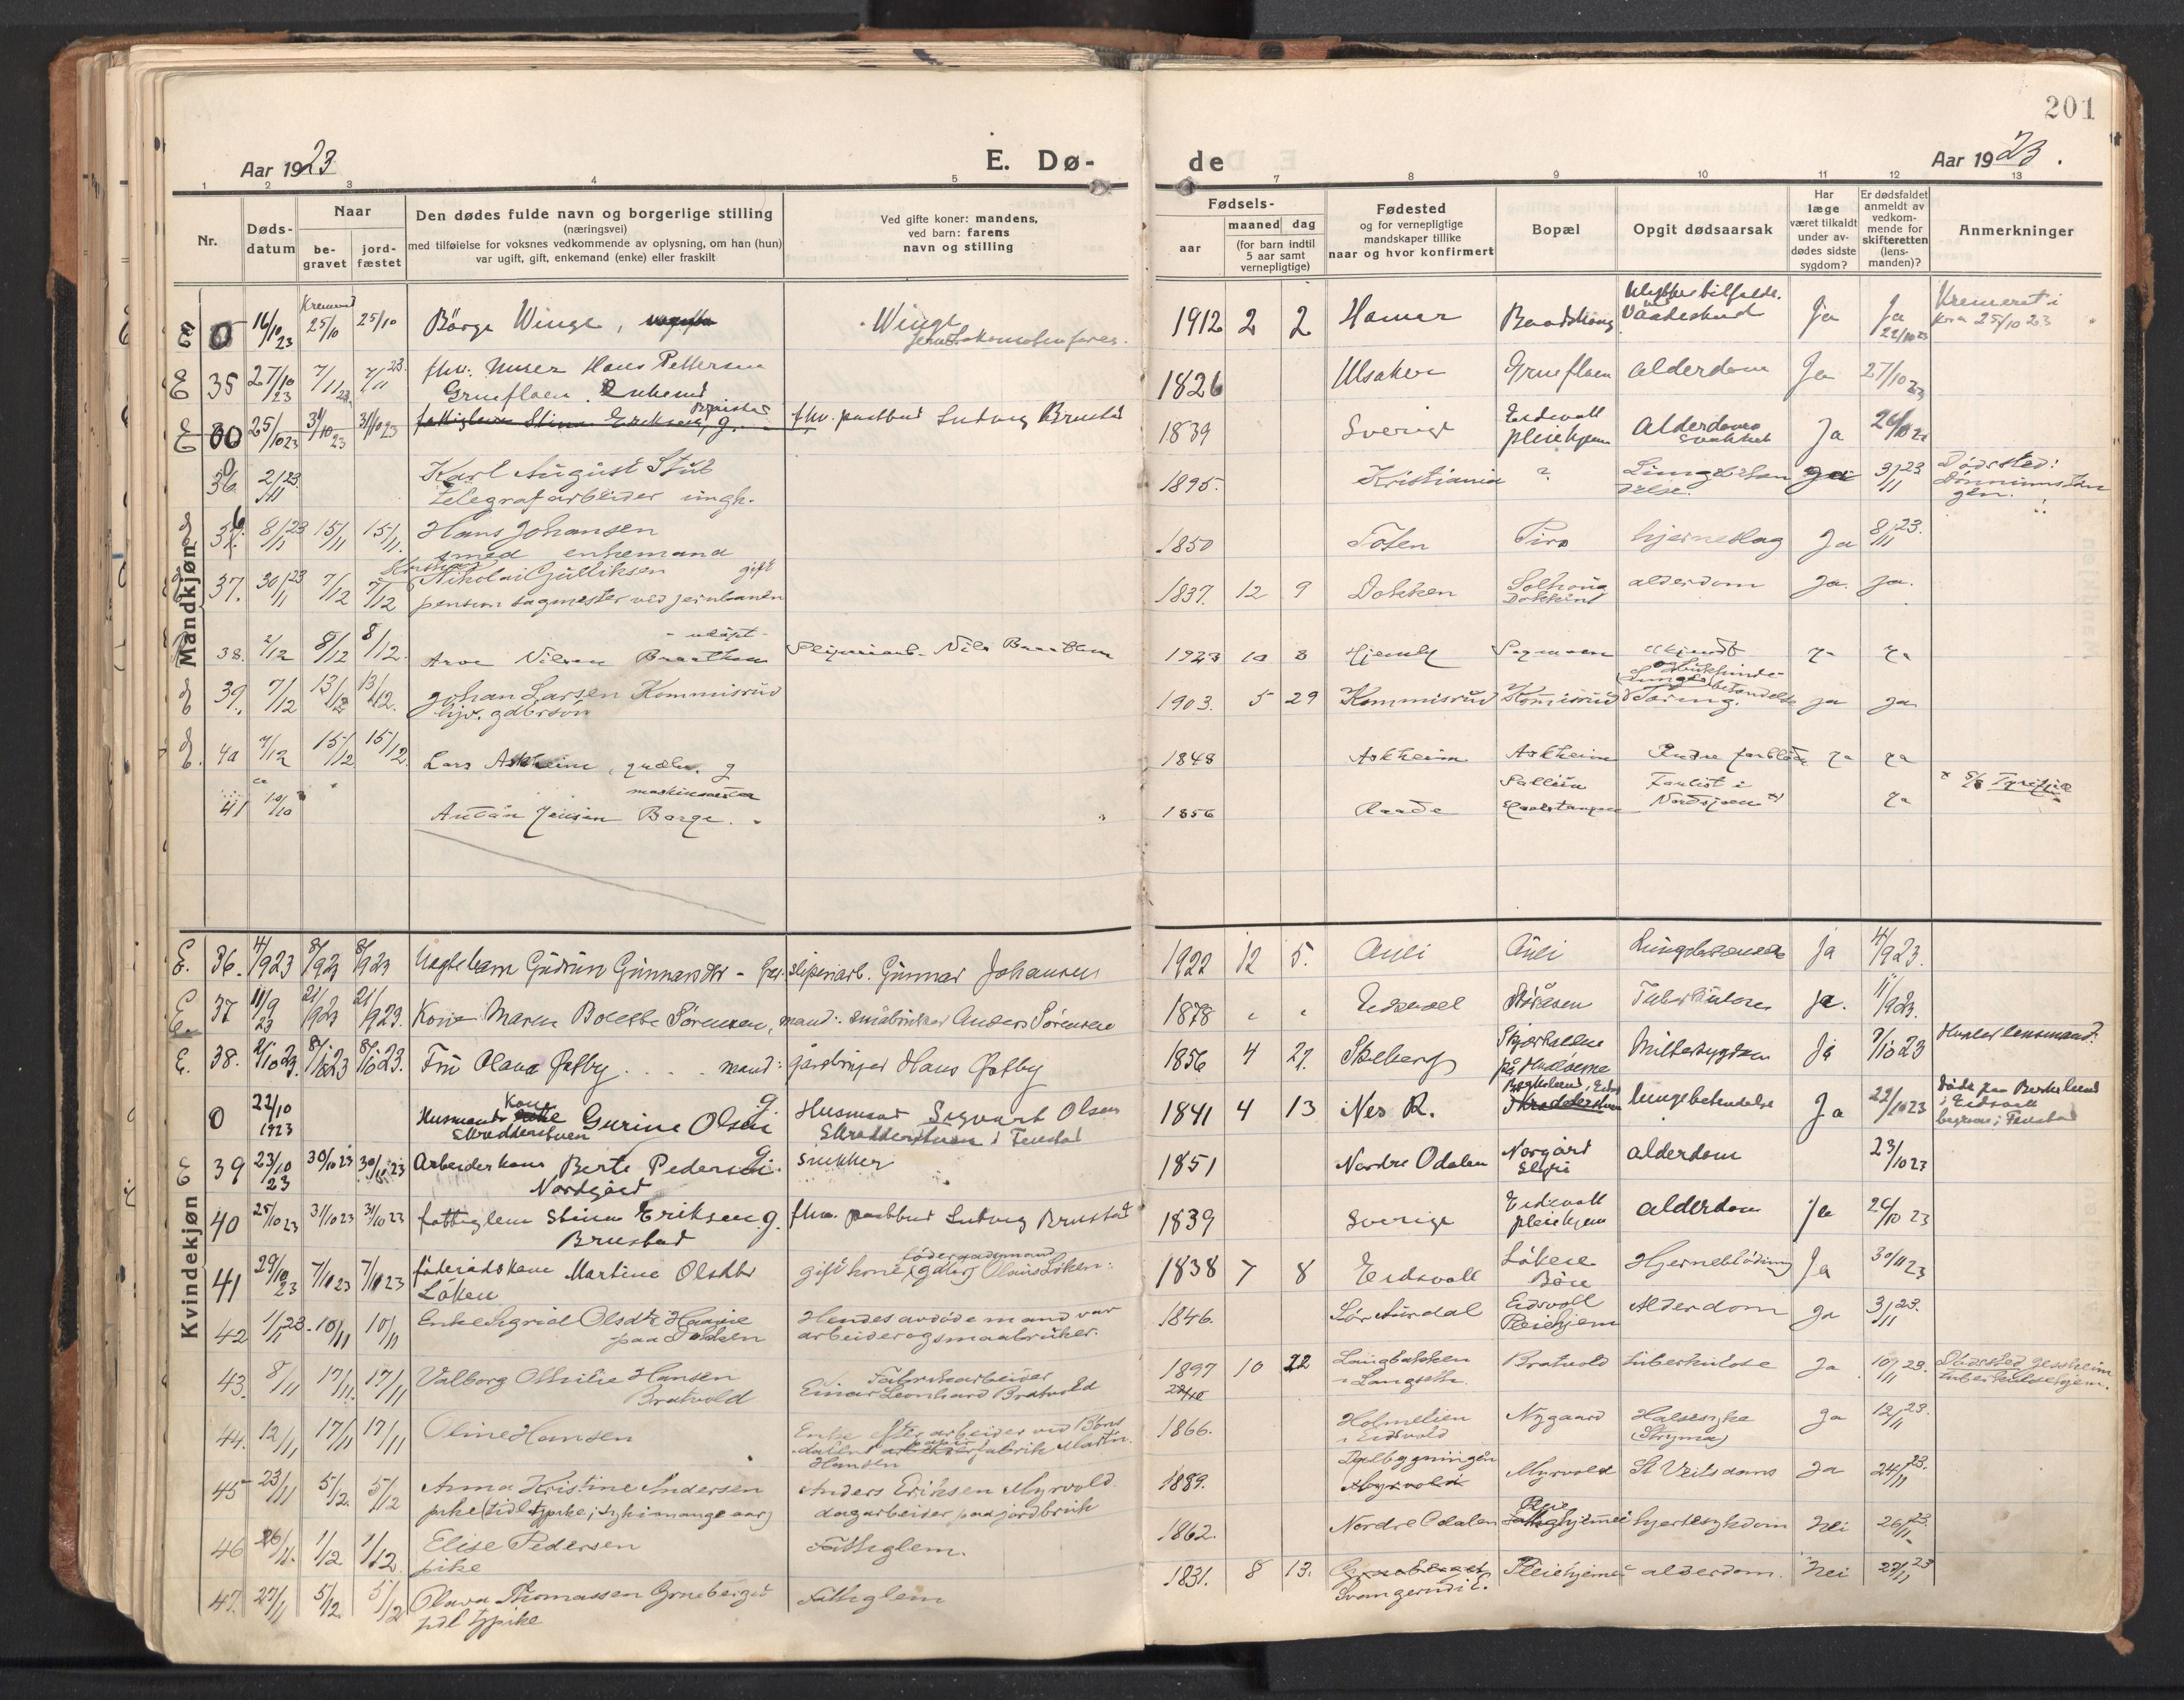 201
Aar 1923
E. Dø-
de
Aar 1923.
1 2 3 4 5 7 8 9 10 11 12 13
Nr.
Døds-
datum
Naar
be-
gravet
jord-
fæstet
Den dødes fulde navn og borgerlige stilling
(næringsvei)
med tilføielse for voksnes vedkommende av oplysning, om han (hun)
var ugift, gift, enkemand (enke) eller fraskilt
Ved gifte koner: mandens,
ved barn: farens
navn og stilling
Fødsels-
aar
maaned dag
(for barn indtil
5 aar samt
vernepligtige)
Fødested
og for vernepligtige
mandskaper tillike
naar og hvor konfirmert
Bopæl
Opgit dødsaarsak
Har
læge
været tilkaldt
under av-
dødes sidste
sygdom?
Er dødsfaldet
anmeldt av
vedkom-
mende for
skifteretten
(lens-
manden)?
Anmerkninger
Mandkjøn
E 0 16/10 23 25/10 25/10 Börge Winge, Winge 1912 2 2 Hamar Vaadeskud Ja Ja 22/10 23 Kremeret i
Kra 25/10 23
E 35 27/10 23 7/11 23 7/11 23 fhv. Murer Hans Pettersen
Grueflaen. Enkemd 1826 Ulsaker Grueflaen Alderdom Ja 27/10 23
E 25/10 23 31/10 23 31/10 23 fattiglem Stina Eriksen g. Brustad fhv. postbud Ludvig Brustad 1839 Sverige Eidsvoll
pleiehjem Alderdoms
svakhet Ja 26/10 23
36 2/11 23 Karl August Stub
telegrafarbeider ungk. 1895. Kristiania ? Ja 3/11 23 Dødssted:
36. 8/11 23 15/11 15/11. Hans Johansen
smed enkemand 1850 Toten Piro hjerneslag Ja 8/11 23.
37. 30/11 23 7/12 7/12 Nikolai Gulliksen gift
pension bagmester ved jernbanen 1837. 12 9 Dokken alderdom Ja. Ja.
38. 2/12 8/12 8/12. - udöpt -
Arve Nilsen Braathen Sliperiarb. Nils Braathen 1923 10 8 Ukjendt Ja Ja
39. 7/12 13/12 13/12. Johan Larsen Kommisrud
ugv. gdbrsön 1903. 5 29 Kommisrud Komisrud Ja Ja
40 7/12 15/12 15/12. Lars Askheim, gaardbr. g 1848 Askheim Askheim Ja Ja
41 10/10 maskinmester
Anton Jensen Borge. 1856 Raade Forlist i
Nordsjøen x) Ja x S/S Tyrifjell
Kvindekjøn
E. 36. 4/9 23 8/9 23 8/9 23 Uegte barn Gudrun Gunnarsdtr - far: sliperiarb. Gunnar Johansen 1922 12 5. Auli Auli Ja 4/9 23.
E. 37 11/9 23 21/9 23 21/9 23. Kone Maren Bolette Sörensen, mand: småbruker Anders Sörensen 1878 " " Eidsvoll Støråsen Tuberkulose Ja. 11/9 23.
E. 38. 2/10 23. 8/10 23 8/10 23. Fru Olava Østby . . . mand: gårdbruger Hans Østby 1856 4 27. Skeberg Skjærhalden
på Hvaløerne Miltesygdom Ja 3/10 23 Hvaler lensmand.
0 22/10 1923 Husmands kone Gurine Olsen g.
Skredderstuen Husmand Sigvart Olsen
Skredderstuen i Fenstad 1841 4 13 Nes R. lungebetendelse Ja 22/10 23 døde paa Berkelund
i Eidsvoll
begraves i Fenstad
E 39 23/10 23 30/10 23 30/10 23 Arbeiderkone Berte Pedersen g.
Nordgård snekker 1851 Nordre Odalen Norgård
Styri alderdom 23/10 23
40 25/10 23 31/10 23 31/10 23 fattiglem Stina Eriksen g.
Brustad fhv. postbud Ludvig Brustad 1839 Sverige Eidsvoll
pleiehjem alderdom Ja 26/10 23
41 29/10 23 7/10 23 7/10 23 föderådskone Martine Olsdtr
Löken gift kone (gdbr) Olaus Löken: föderaadsmand 1838 7 8 Eidsvoll Lökene
Bön Hjerneblödning Ja 30/10 23
42 1/11 23. 10/11 10/11 Enke Sigrid Olsdtr Haavie
paa Dokken Hendes avdöde mand var
arbeider og smaabruker. 1846. Sör Aurdal Eidsvoll
Pleiehjem Alderdom Ja 3/11 23.
43. 8/11 17/11. 17/11 Valborg Othilie Hansen
Bratvold Fabrikarbeider
Einar Leonhard Bratvold 1897 10 22 Langbakken
i Langseth. Bratvold tuberkulose Ja 10/11 23. Dödssted Jessheim
tuberkulosehjem.
44. 12/11 17/11 17/11 Oline Hansen Enke efter arbeider ved Böns-
dalens fabrik Martin
Hansen 1866. Holmelien
i Eidsvold Nygaard Halssyke
(Struma) Ja 12/11 23.
45 23/11 5/12. 5/12 Anna Kristine Andersen
pike (tidl tjpike; syk i mange aar) Anders Eriksen Myrvold
dagarbeider paa jordbruk 1889. Dalbygningen
Myrvold Myrvold St Veitsdans Ja 24/11 23.
46 26/11. 1/12. 1/12 Elise Pedersen
pike Fattiglem. 1862. Nordre Odalen hjertesykdom Nei 26/11 23.
47. 27/11 5/12. 5/12 Olava Thomassen Grueberget
tidl tjpike Fattiglem 1831. 8 13. Grueberget
Svangerud i E. Pleiehjemmet alderdom. Nei 27/11 23